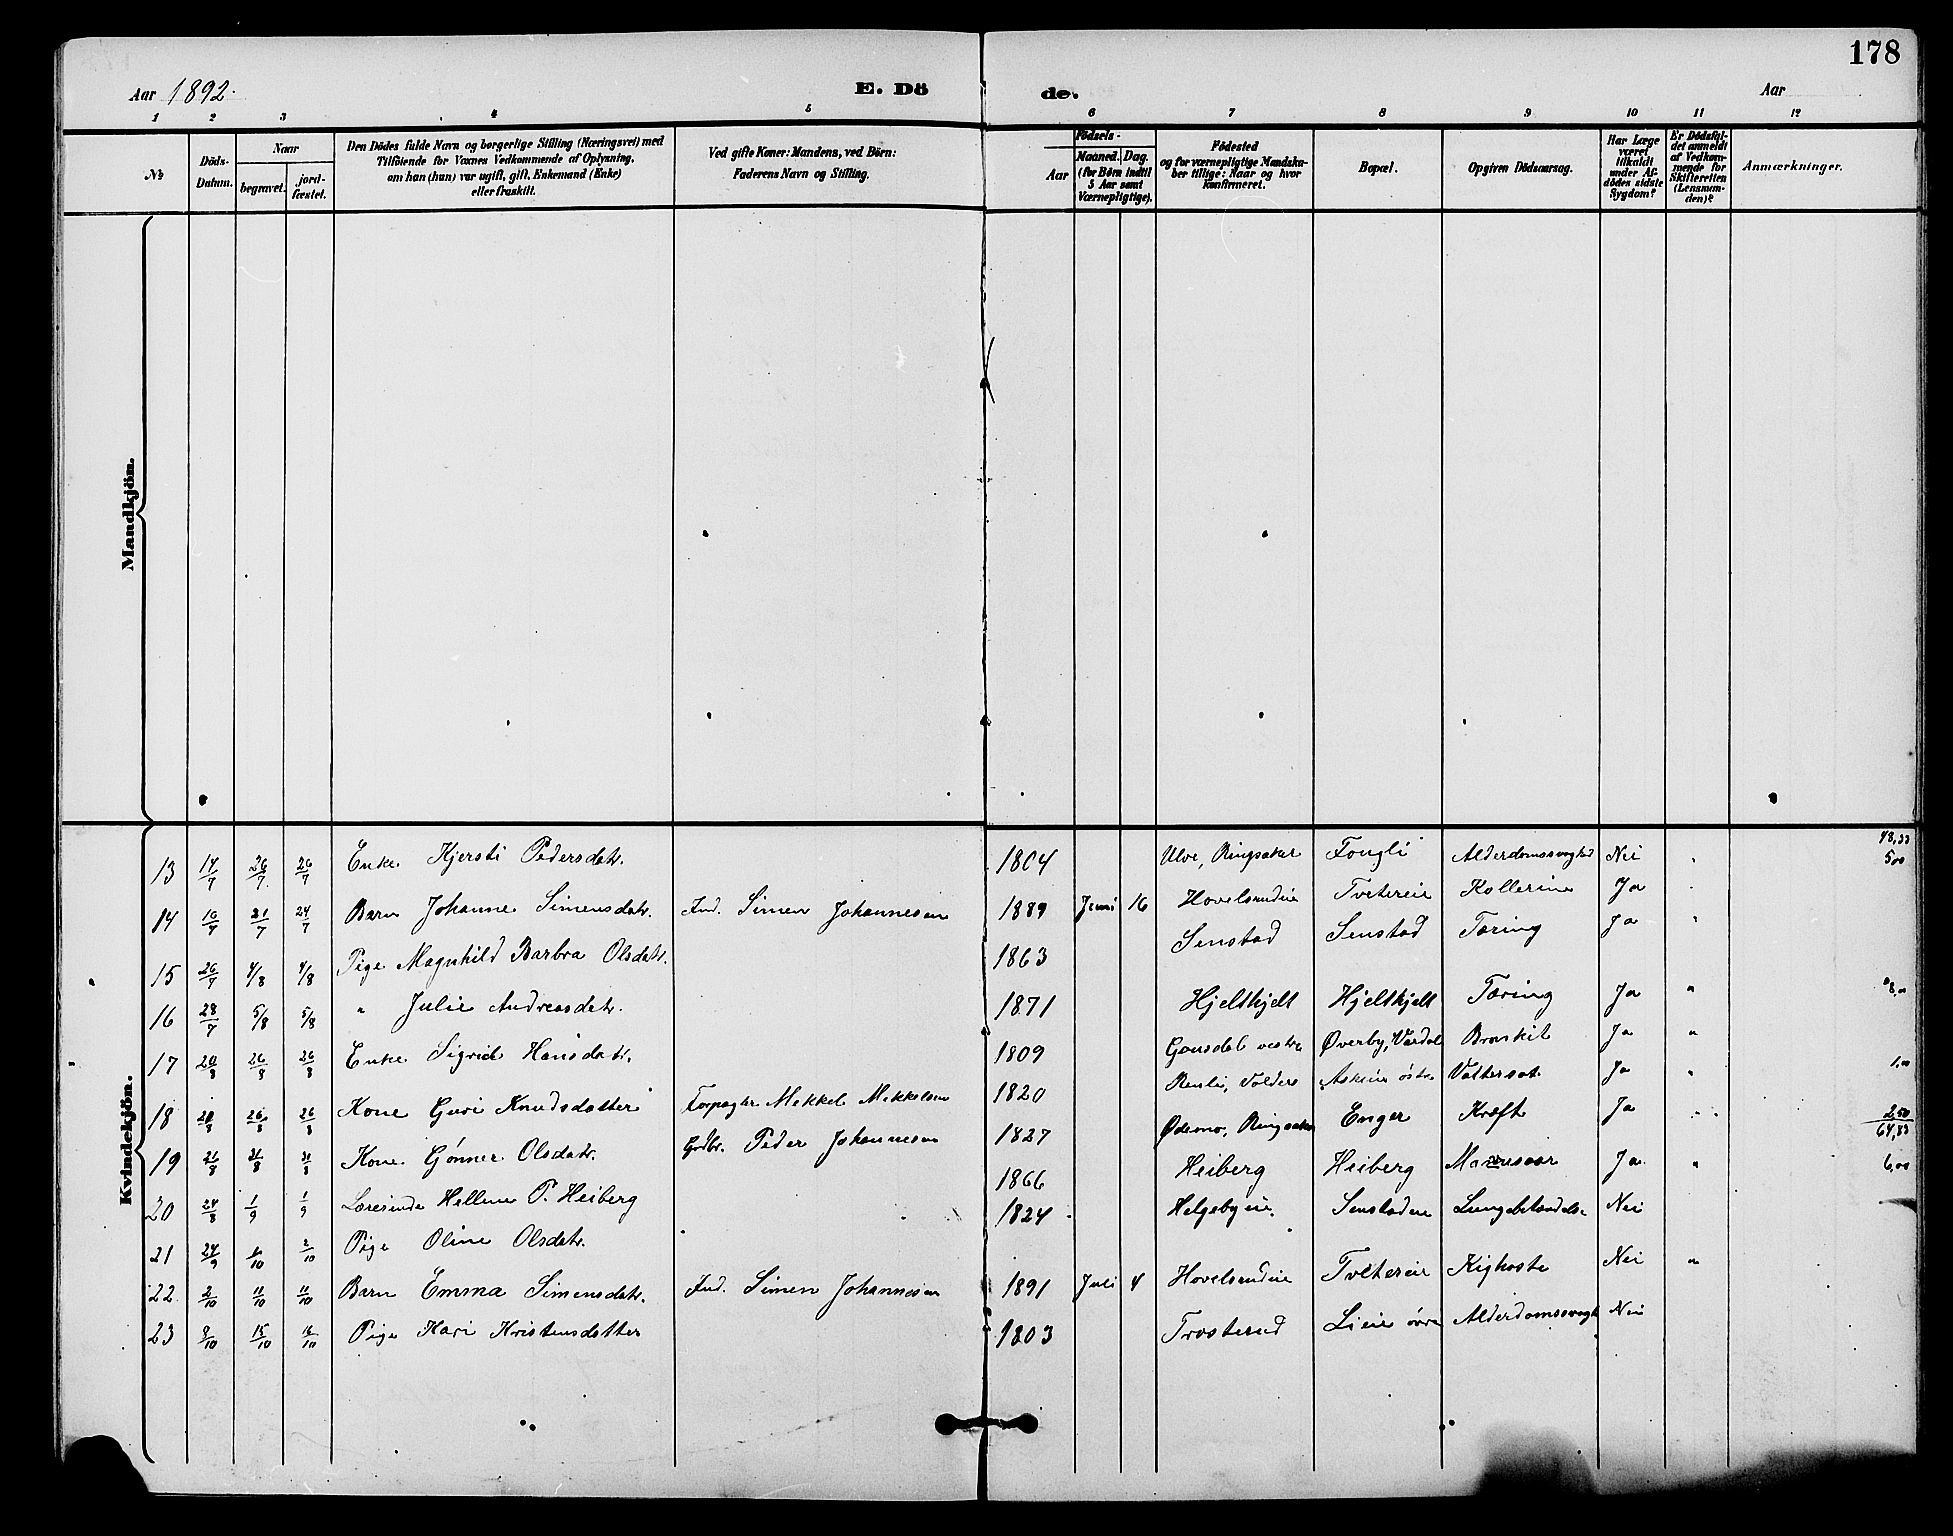 178
Aar 1892.
E. Dö de.
Aar
1 2 3 4 5 6 7 8 9 10 11 12
№
Döds-Datum.
Naar
begravet.
jord-fæstet.
Den Dödes fulde Navn og borgerlige Stilling (Næringsvei) med Tilföiende for Voxnes Vedkommende af Oplysning, om han (hun) var ugift, gift, Enkemand (Enke) eller fraskilt.
Ved gifte Koner: Mandens, ved Börn: Faderens Navn og Stilling.
Födsels-
Aar
Maaned. Dag.
(for Börn indtil 5 Aar samt Værnepligtige).
Födested og for værnepligtige Mandskaber tillige: Naar og hvor konfirmeret.
Bopæl.
Opgiven Dödsaarsag.
Har Læge været tilkaldt under Afdödes sidste Sygdom?
Er Dödsfaldet anmeldt af Vedkommende for Skifteretten (Lensmanden)?
Anmærkninger.
Mandkjön.
Kvindekjön.
13 17/7 26/7 26/7 Enke Kjersti Pedersdatr. 1804 Ulve, Ringsaker Fougli Nei 5,00
14 21/7 24/7 Barn Johanne Simensdatr. Ind. Simen Johannesen 1889 Juni 16 Hovelsrudeie Tvetereie Kollerine Ja
15 26/7 4/8 4/8 Pige Magnhild Barbra Olsdatr. 1863 Senstad Senstad Tæring Ja "
16 28/7 5/8 5/8 " Julie Andreasdatr. 1871 Hjeltkjelt Hjeltkjelt Tæring Ja "
17 20/8 26/8 26/8 Enke Sigrid Hansdatr. 1809 Gausdal vestre Øverby, Vardal Bronkit Ja "
18 20/8 26/8 26/8 Kone Guri Knudsdatter Forpagter Mekkel Mekkelsen 1820 Valders østre Vattersot Ja " 1,00
19 21/8 31/8 31/8 Kone Gønner Olsdatr. Grdbr. Peder Johannesen 1827 Ødemo, Ringsaker Enger Kræft Ja " 2,50
64,83
20 24/8 1/9 1/9 Lærerinde Helene P. Heiberg 1866 Heiberg Heiberg Ja " 6,00
21 24/9 2/10 Pige Oline Olsdatr. 1824 Helgebyeie Senstadeie Lungebetændelse Nei
22 2/10 11/10 11/10 Barn Emma Simensdatr. Ind. Simen Johannesen 1891 Juli 4 Hovelsrudeie Tvetereie Kighoste Nei "
23 9/10 15/10 16/10 Pige Kari Kristensdatter 1803 Trosterud Lieie øvre Alderdomssvagh. Nei